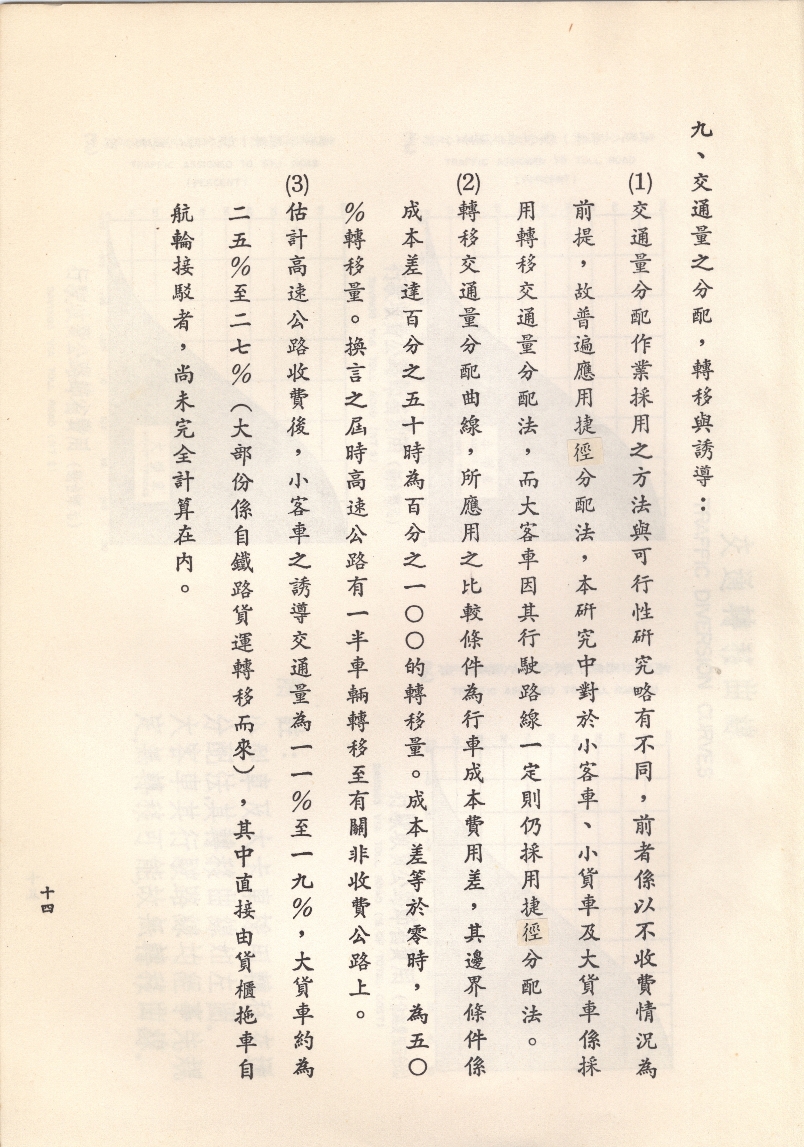 九、交通量之分配，轉移與誘導：
(1)交通量分配作業採用之方法與可行性研究略有不同，前者係以不收費情況為
前提，故普遍應用捷徑分配法，本研究中對於小客車、小貨車及大貨車係採
用轉移交通量分配法，而大客車因其行駛路線一定則仍採用捷徑分配法。
(2)轉移交通量分配曲線，所應用之比較條件為行車成本費用差，其邊界條件係
成本差達百分之五十時為百分之一〇〇的轉移量。成本差等於零時，為五〇
％轉移量。換言之屆時高速公路有一半車輛轉移至有關非收費公路上。
(3)估計高速公路收費後，小客車之誘導交通量為一一％至一九％，大貨車約為
二五％至二七％（大部份係自鐵路貨運轉移而來），其中直接由貨櫃拖車自
航輪接駁者，尚未完全計算在內。
十四